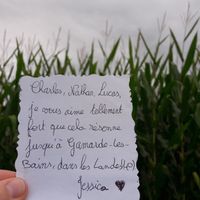 Charles, Nathan, Lucas,
je vous aime tellement
fort que cela résonne
jusqu'à Gamarde-les-
Bains, dans les Landes (40)
Jessica ♥